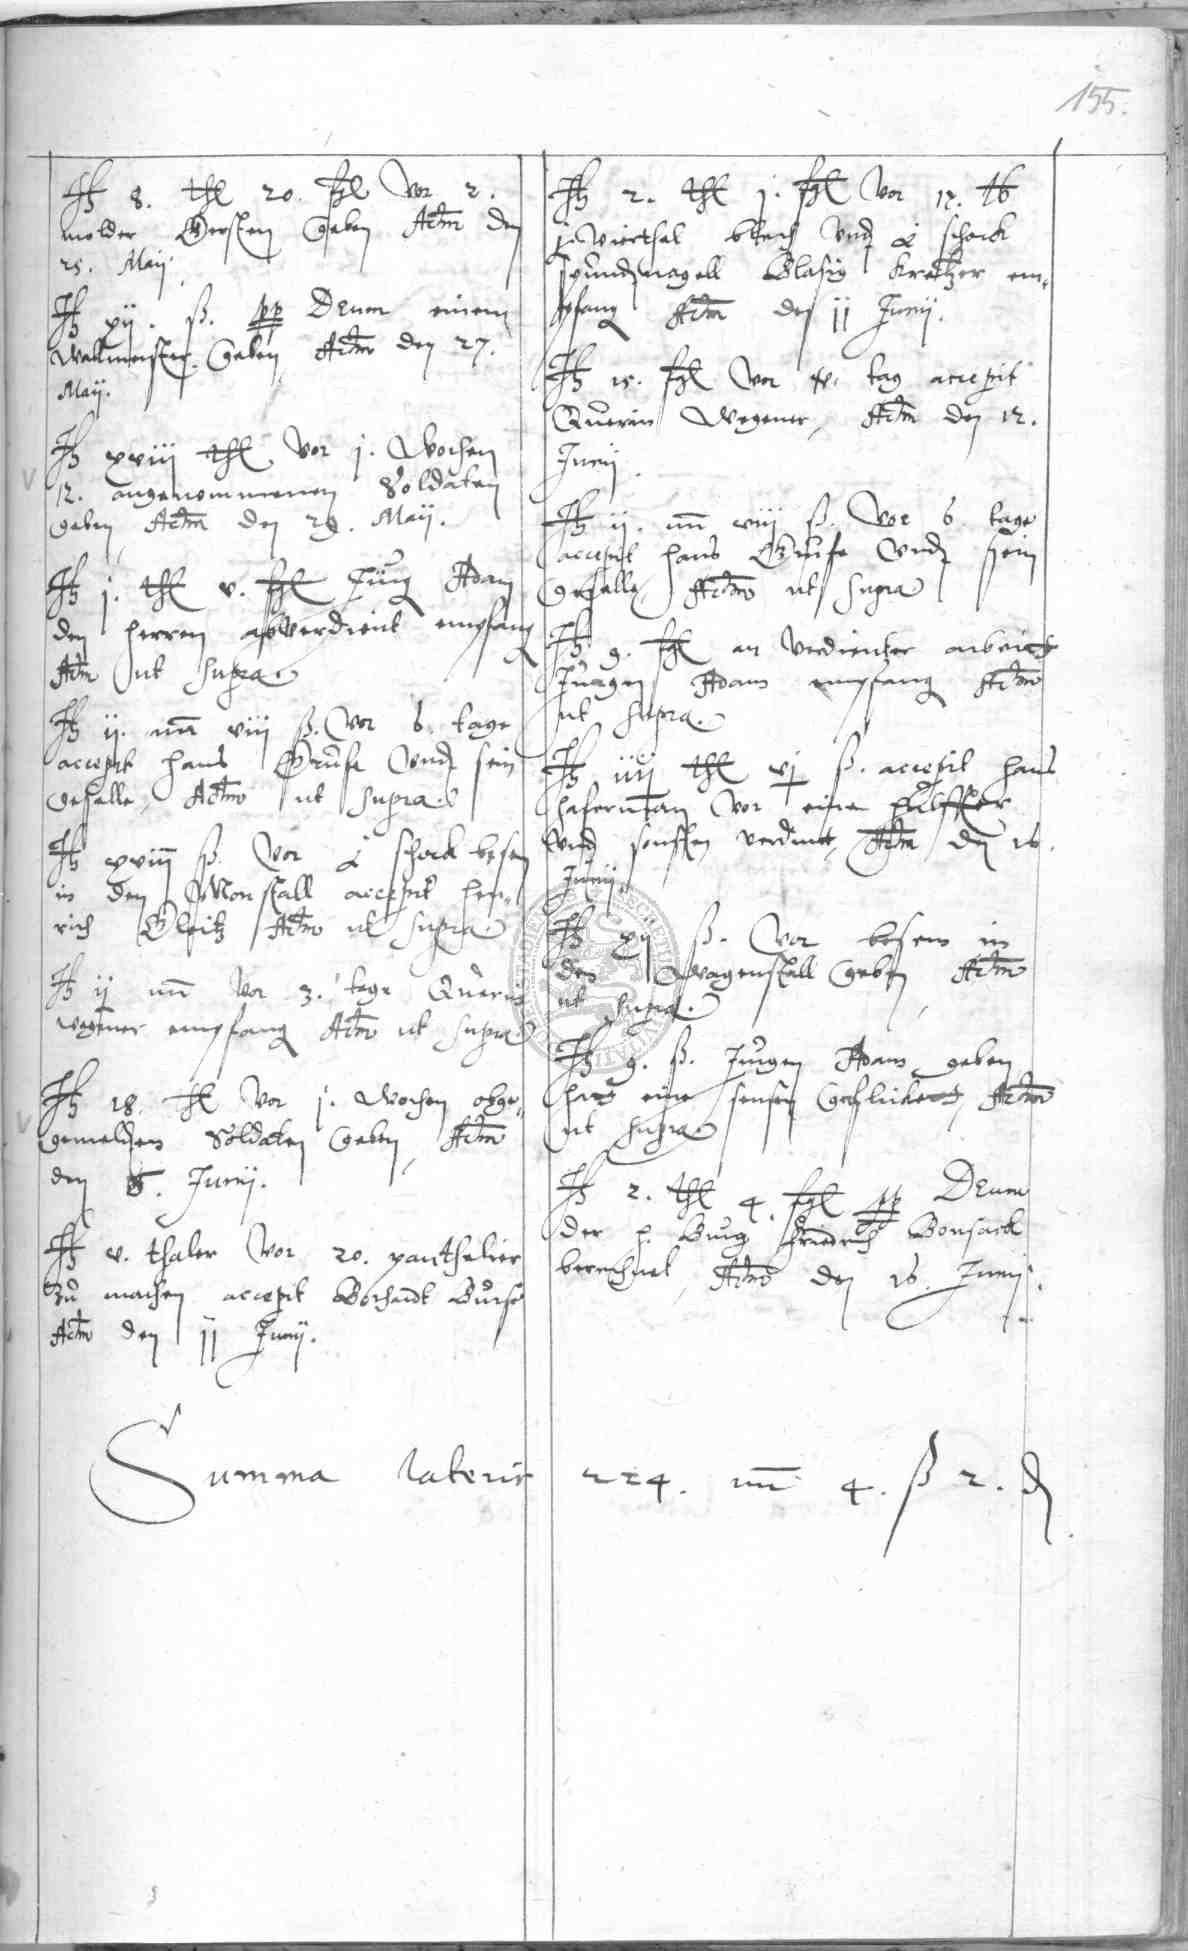 155.
It 8. thl 20. fgl vor 2.
molder Gersten geben Actm den
25. Maij
It xij. ß. pp Deum einem
Wallmeister geben, Actm den 27.
Maij.
It xviij thl vor j. Wochen
12. angenommenen Soldaten
geben, Actm den 29. Maij.
It j. thl v. fgl Jürg Adam
den herren abverdient empfang
Actm ut supra
It ij. mr viij ß. vor 6 tage
accepit hans Grufe vnd sein
geselle, Actm ut supra
It xviij ß. vor schock besen
in den Monstall accepit hen-
rich Actm ut supra
It ij mr vor 3. tage Querin
wegener empfang Actm ut supra
It 18. thl vor j. Wochen obge-
gemelden Soldaten geben, Actm
den 5. Junij.
It v. thaler vor 20. panthelier
zu machen accepit Borhardt Burse
Actm den 11 Junij.
It 2. thl j. fgl vor 17. lb
j. Viertel blech vnd schock
spundnagell Blasig Kretzer em-
pfang Actm den 11 Junij.
It 15. fgl vor tag accepit
Querin Wegener, Actm den 12.
Junij
It ij. mr viij ß. vor 6 tage
accepit hans Grufe vnd sein
geselle, Actm ut supra
It 9. fgl an verdienter arbeit
Jurgen Adam empfang Actm
ut supra.
It iiij thl vj ß. accepit hans
haferman vor eine
vnd sonsten verdint, Actm den 16.
Junij.
It xij ß. vor besem in
den Wagenstall geben, Actm
ut supra.
It 9. ß. Jurgen Adam geben
hat eine sensen Actm
ut supra
It 2. thl 4. fgl pp Deum
der h. Burg Friedrich Bonsack
berechnet, Actm den 16. Junij.
Summa lateris 224. mr 4. ß 2. d